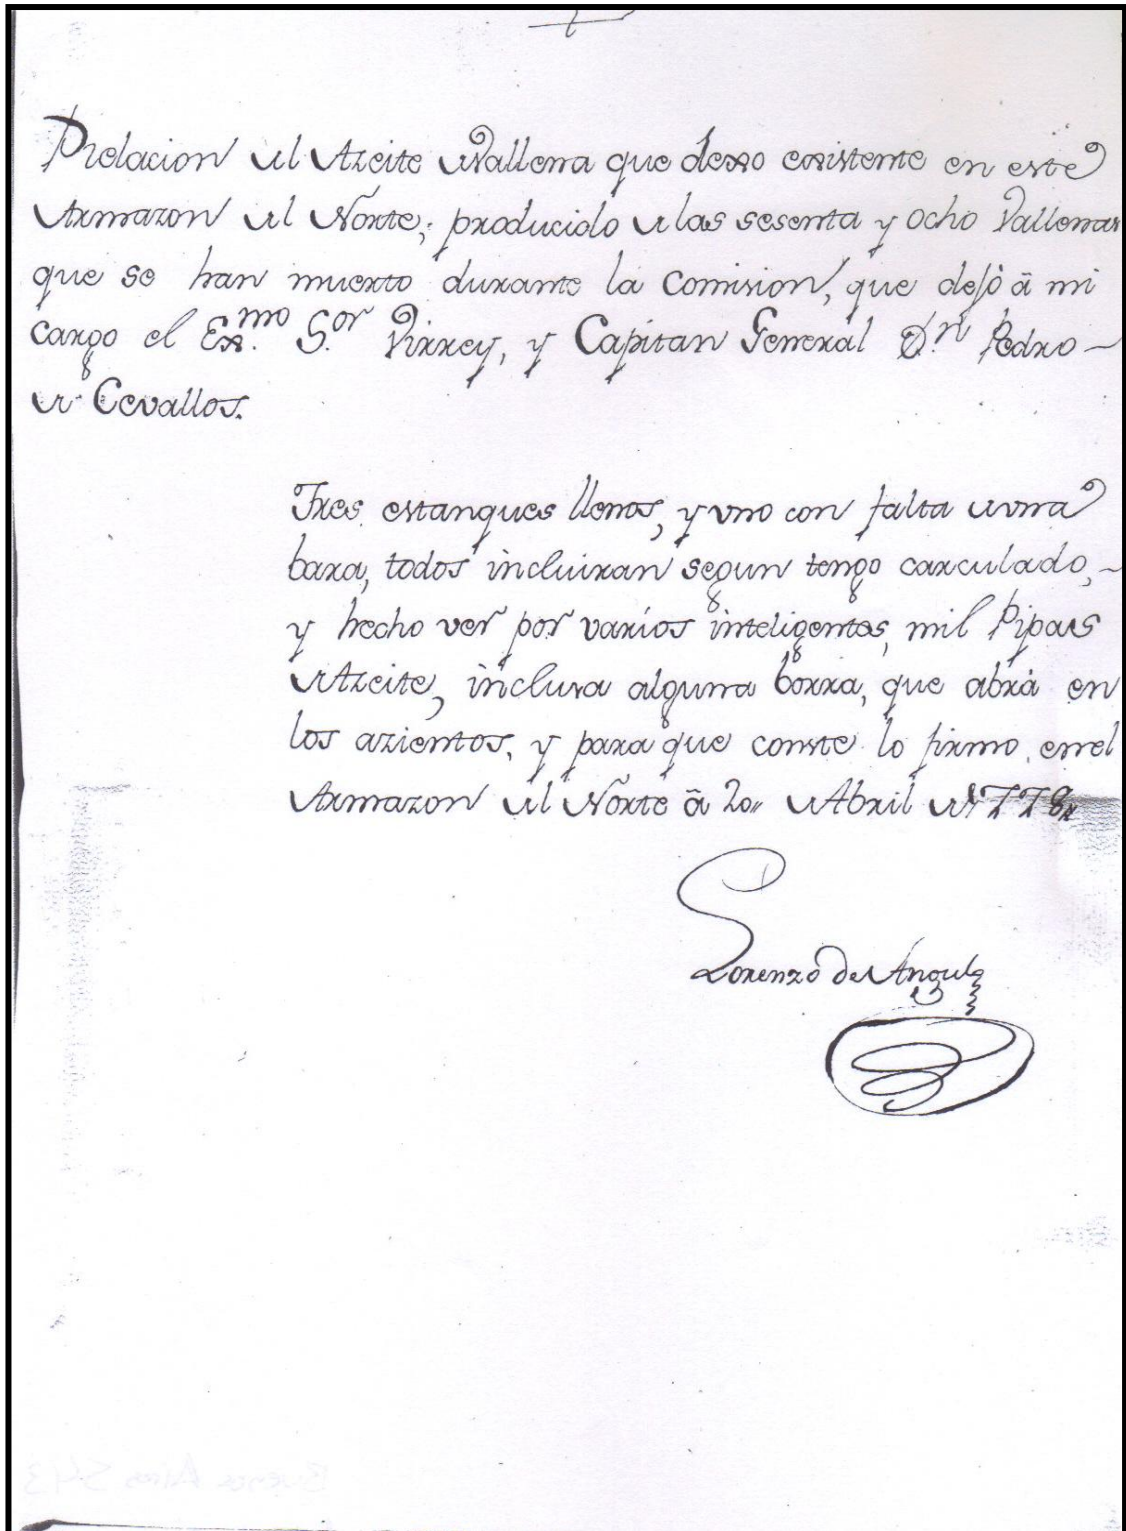 Relacion del Azeite de Vallena que dexo existente en este
Armazon del Norte, producido de las sesenta y ocho Vallenas
que se han muerto durante la Comision, que dejò â mi
cargo el Ex.mo S.or Virrey, y Capitan General D.n Pedro
de Cevallos.
Tres estanques llenos, y vno con falta de vna
bara, todos incluiran segun tengo carculado,
y hecho ver por varios inteligentes, mil Pipas
de Azeite, inclusa alguna borra, que abrà en
los azientos, y para que conste lo firmo en el
Armazon del Norte â 20,, de Abril de 1778
Lorenzo de Angulo
Buenos Aires 543